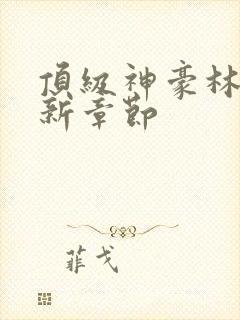 頂級神豪林
新章節
菲戈